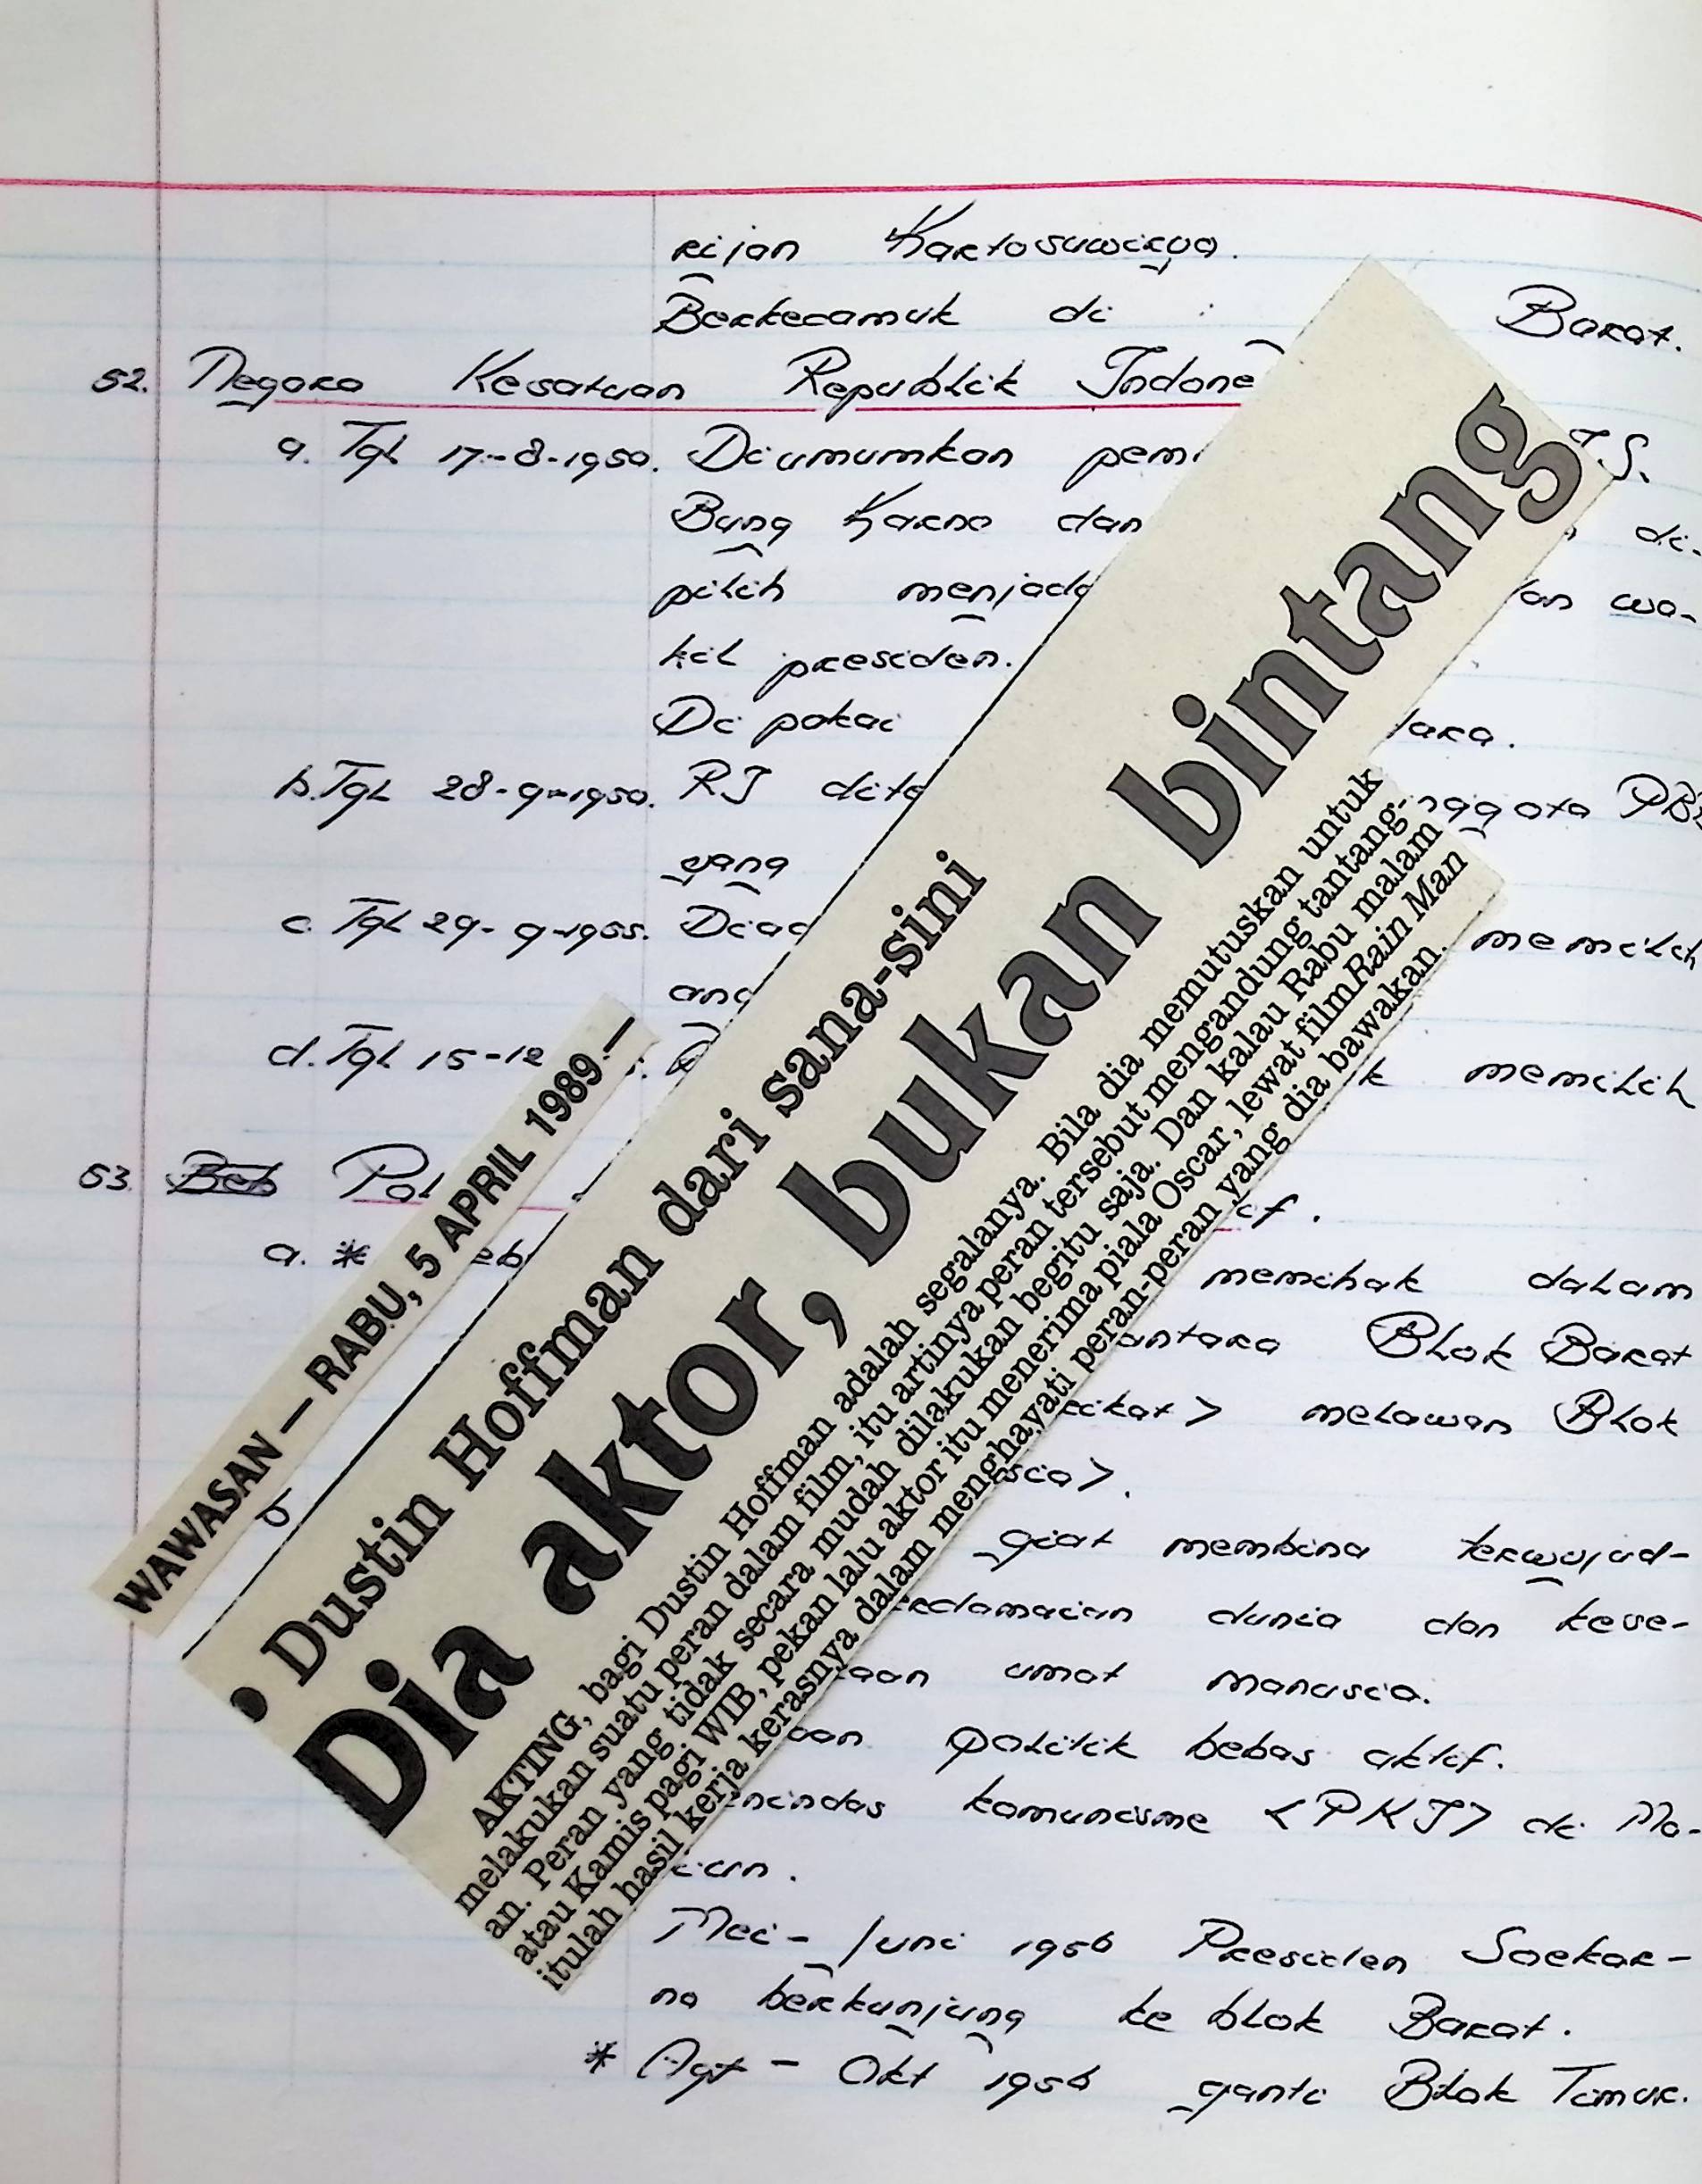 rijan Kartosuwiryo.
Berkecamuk di Barat.
52. Negara Kesatuan Republik Indone
a. Tgl 17-8-1950. Diumumkan pem .S.
Bung Karno dan di-
pilih menjad an wa-
kil presiden.
Di pakai ara.
b. Tgl 28-9-1950. RI dite nggota PBB
yang
c. Tgl 29-9-1955. Diad memilih
ang
d. Tgl 15-12 memilih
53. Beb Pol if.
a. * eb
memihak dalam
antara Blok Barat
rikat> melawan Blok
sia>.
giat membina terwujud-
erdamaian dunia dan seje-
raan umat manusia.
aan politik bebas aktif.
enindas komunisme <PKI> di Ma-
iun.
Mei - Juni 1956 Presiden Soekar-
no berkunjung ke blok Barat.
* Agt - Okt 1956 ganti Blok Timur.
WAWASAN — RABU, 5 APRIL 1989 —
• Dustin Hoffman dari sana-sini
Dia aktor, bukan bintang
AKTING, bagi Dustin Hoffman adalah segalanya. Bila dia memutuskan untuk
melakukan suatu peran dalam film, itu artinya peran tersebut mengandung tantang-
an. Peran yang tidak secara mudah dilakukan begitu saja. Dan kalau Rabu malam
atau Kamis pagi WIB, pekan lalu aktor itu menerima piala Oscar, lewat film Rain Man
itulah hasil kerja kerasnya dalam menghayati peran-peran yang dia bawakan.